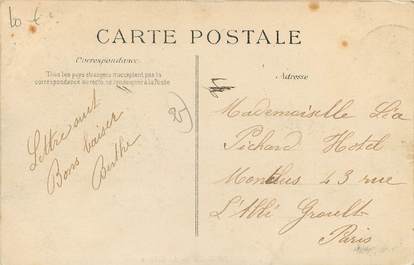 CARTE POSTALE
Correspondance
Tous les pays étrangers n'acceptent pas la
correspondance au recto, se renseigner à la Poste
Lettre suit
Bons baiser
Berthe
Adresse
Mademoiselle Léa
Pichard Hotel
43 rue
L'Abbé Groult
Paris